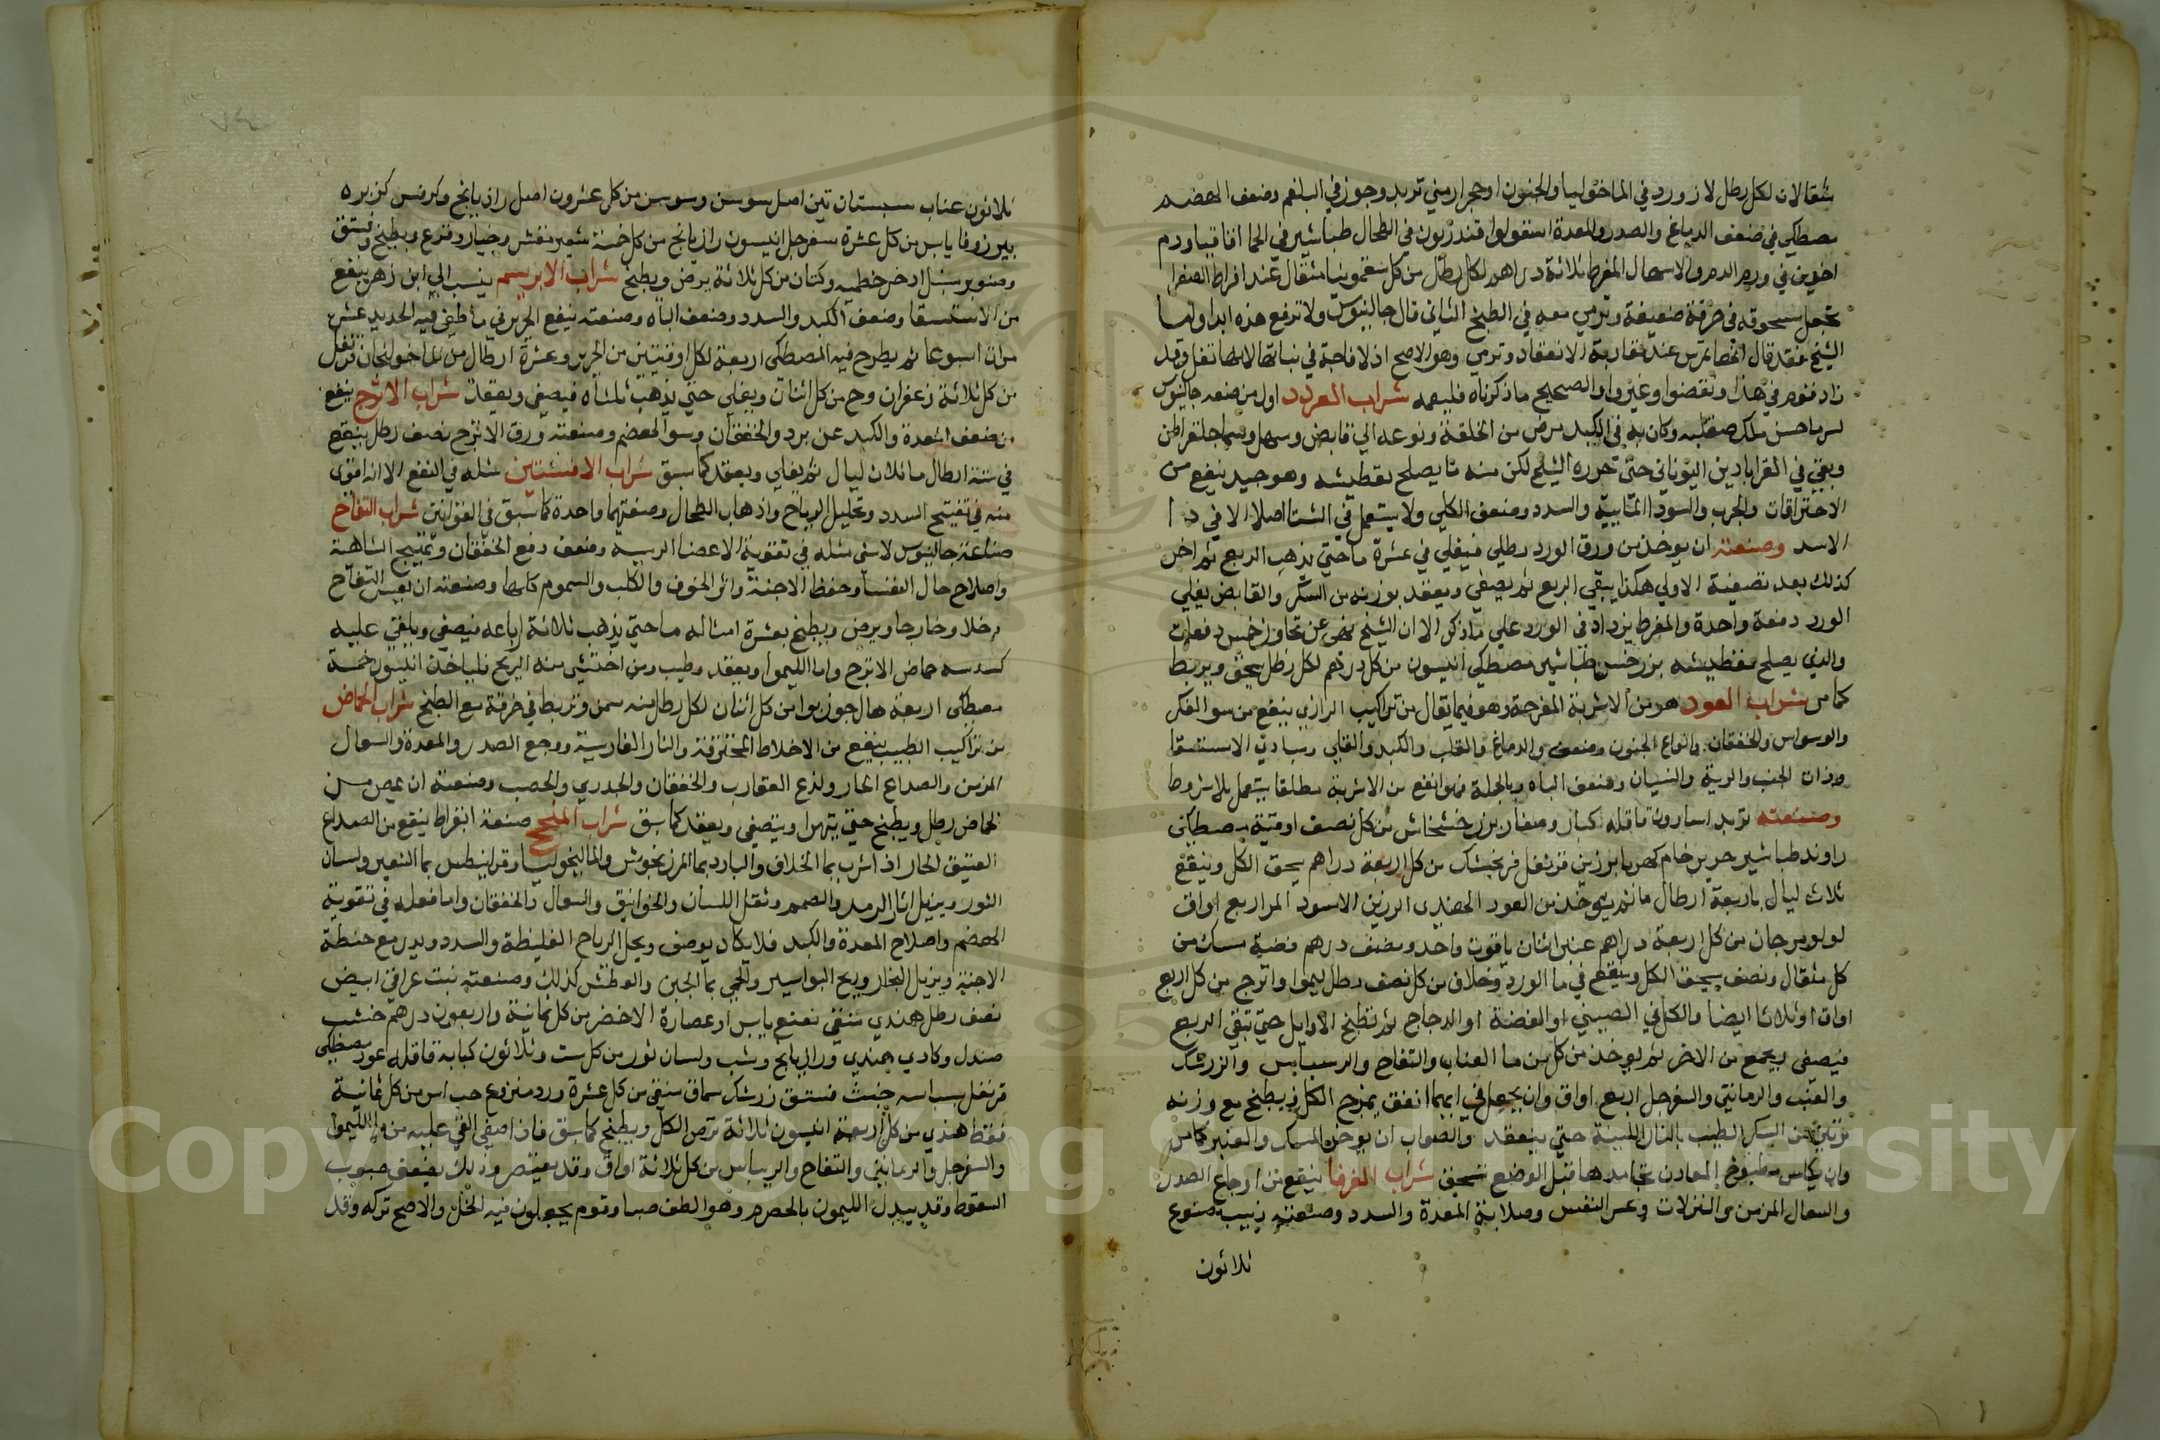 مثقالان لكل رطل لازورد في الماخوليا والجنون اوحجر ارمني تربد وجوز في البلغم وضعف الهضم
مصطكي في ضعف الدماغ والصدر والمعدة اسقولوا قندريون في الطحال طباشير في الحما اقاقيا ودم
اخوين في ورم الدم والاسهال المفرط ثلاثة دراهم لكل رطل من كل سقمونيا مثقال عند افراط الصفرا
تجعل مسحوقه في خرقة صفيقة وترمي معه في الطبخ الثاني قال جالينوس ولا ترفع هذه ابدا واما
الشيخ فقد قال انها تمرس عند مقاربة الانعقاد وترمي وهو الاصح اذ لا فاحة في نباتها الا انها تفل وقد
زاد قوم في هذا ونقصوا وغيروا والصحيح ما ذكرناه فليعمه شراب الورد اول من صنعه جالينوس
ملك صقلية وكان به في الكبد مرض من الخلفة ونوعه الي قابض ومسهل
وبقي في القرابادين اليوناني حتى حرره الشيخ لكن منه ما يصلح بقطيشه وهو جيد ينفع من
الاحتراقات والجرب والسودا والسدد وضعف الكلي ولا يستعمل في الشتا اصلا الا في
الاسد وصنعته ان يوخذ من ورق الورد رطلي فيغلي في عشرة ما حتي يذهب الربع ثم اخر
كذلك بعد تصفية الاولي هكذا يبقي الربع ثم يصفي ويعقد بوزنه من السكر والقابض يغلي
الورد دفعة واحدة والمفرط يزداد في الورد علي ما ذكر الا ان الشيخ نهي عن تجاوز خمس دفعات
والذي يصلح بقطيشه بزر خس طباشير مصطكي انيسون من كل درهم لكل رطل يسحق ويربط
كما مر شراب العود هو من الاشربة المفرحة وهو فيما يقال من تراكيب الرازي ينفع من سو الفكر
والوسواس والخفقان وانواع الجنون وضعف الدماغ والقلب والكبد والقلب ومبادي الاستسقا
وذات الجنب والرية والنسيان وضعف الباه وبالجملة فهو انفع من الاشربة مطلقا يستعمل بلا شروط
وصنعته تربد اسارون قاقله كبار وصغار بزر خشخاش من كل نصف اوقية مصطكي
راوند طباشير حرير خام كهربا برزين قرنفل فرنجمشك من كل اربعة دراهم يسحق الكل وينقع
ثلاث ليال باربعة ارطال ما ثم يوخذ من العود الهندي الرزين الاسود المر اربع اواق
لولو مرجان من كل اربعة دراهم عنبر اثنان ياقوت واحد ونصف درهم فضة مسك من
كل مثقال ونصف يسحق الكل وينقع في ما الورد وخلاف من كل نصف رطل ليموا واترج من كل اربع
اواق او ثلاثا ايضا والكل في الصيني او الفضة او الدجاج ثم تطبخ الاوايل حتي تبقي الربع
فيصفي ويجمع من الاخر ثم يوخذ من كل من ما العناب والتفاح والرسباس والزرشك
والعنب والرمانين والسفرجل اربع اواق وان يجعل في ايهما اتفق يمزج الكل ويطبخ مع وزنه
مرتين من السكر الطيب بالنار اللينة حتي ينعقد والصواب ان يوخر المسك والعنبر كما مر
وان يكلس مطبوخ المعادن تجامدها قبل الوضع تسحق شراب الزوفا ينفع من اوجاع الصدر
والسعال المزمن والنزلات وعسر النفس وصلابة المعدة والسدد وصنعته زبيب منزوع
ثلاثون
ثلاثون عناب سبستان تين اصل سوسن وسوسن من كل عشرون اصل رازيانج وكرفس كزبره
بير زوفا يابس من كل عشرة سفرجل انيسون رازيانج من كل خمسة شعير مقشر وخيار وقرع وبطيخ وفستق
وصنوبر سنبل اذخر خطميه وكتان من كل ثلاثة يرض ويطبخ شراب الابريسم ينسب الي ابن زهر ينفع
من الاستسقا وضعف الكبد والسدد وضعف الباه وصنعته ينقع الحرير في ما طفي فيه الحديد عشر
مرات اسبوعا ثم يطرح فيه المصطكي اربعة لكل اوقيتين من الحرير وعشرة ارطال من الما خولنجان قرنفل
من كل ثلاثة زعفران وج من كل اثنان ويغلي حتي يذهب ثلثاه فيصفي ويعقد شراب الاترج ينفع
من ضعف المعدة والكبد عن برد والخفقان وسو الهضم وصنعته ورق الاترج نصف رطل ينقع
في ستة ارطال ما ثلاث ليال ثم يغلي ويعقد كما سبق شراب الافسنتين مثله في النفع الا انه اقوي
منه في تفتيح السدد وتحليل الرياح واذهاب الطحال وصنعتهما واحدة كما سبق في القوانين شراب التفاح
صناعة جالينوس لا شي مثله في تقوية الاعضا الرييسه وضعف دفع الخفقان وتهييج الشاهية
واصلاح حال النفسا وحفظ الاجنة واثر الخوف والكلب والسموم كلها وصنعته ان يقشر التفاح
داخلا وخارجا ويرض ويطبخ بعشرة امثاله ما حتي يذهب ثلاثة ارباعه فيصفي ويلقي عليه
كسدسه حماض الاترج وما الليموا ويعقد وطيب ومن اختشي منه الريح فلياخذ انيسون خمسة
مصطكي اربعة هال جوزبوا من كل اثنان لكل رطل منه سمن وتربط في خرقة مع الطبخ شراب الحماض
من تراكيب الطبيب ينفع من الاخلاط المحترقة والنار الفارسية ووجع الصدر والمعدة والسعال
المزمن والصداع الحار ولذع العقارب والخفقان والجدري والحصب وصنعته ان يعصر من
الحماض رطل ويطبخ حتي يتهرا ويصفي ويعقد كما سبق شراب المفرح صنعة ابقراط ينفع من الصداع
العتيق الحار اذا شرب بما الخلاف والبارد بما المرزنجوش والماليخوليا وقرانيطس بما الشعير ولسان
الثور ويزيل اثار الرمد والصمم وثقل اللسان والخوانيق والسعال والخفقان واما فعله في تقوية
الهضم واصلاح المعدة والكبد فلا يكاد يوصف ويحل الرياح الغليظة والسدد ويدر مع حفظه
الاجنة ويزيل البخار وريح البواسير والحمي بما الجبن والعطش كذلك وصنعته نبت عراقي ابيض
نصف رطل هندي منقي نعنع يابس او عصارة الاخضر من كل ثمانية واربعون درهم خشب
صندل وكادي هندي ورازيانج وشب ولسان ثور من كل ست وثلاثون كبابة قاقله عود مصطكي
قرنفل بسباسه فستق زرشك سماق منقي من كل عشرة ورد منزوع حب اس من كل ثمانية
قسط هندي من كل اربعة انيسون ثلاثة ترض الكل ويطبخ كما سبق فاذا صفي القي عليه من ما الليموا
والسفرجل والرمانين والتفاح والريباس من كل ثلاثة اواق وقد يقتصر وذلك بضعف حبوب
السقوط وقد يبدل الليمون بالحصرم وهو الطف صبا وقوم يجعلون فيه الخل والاصح تركه وقد
Copyright © King Saud University